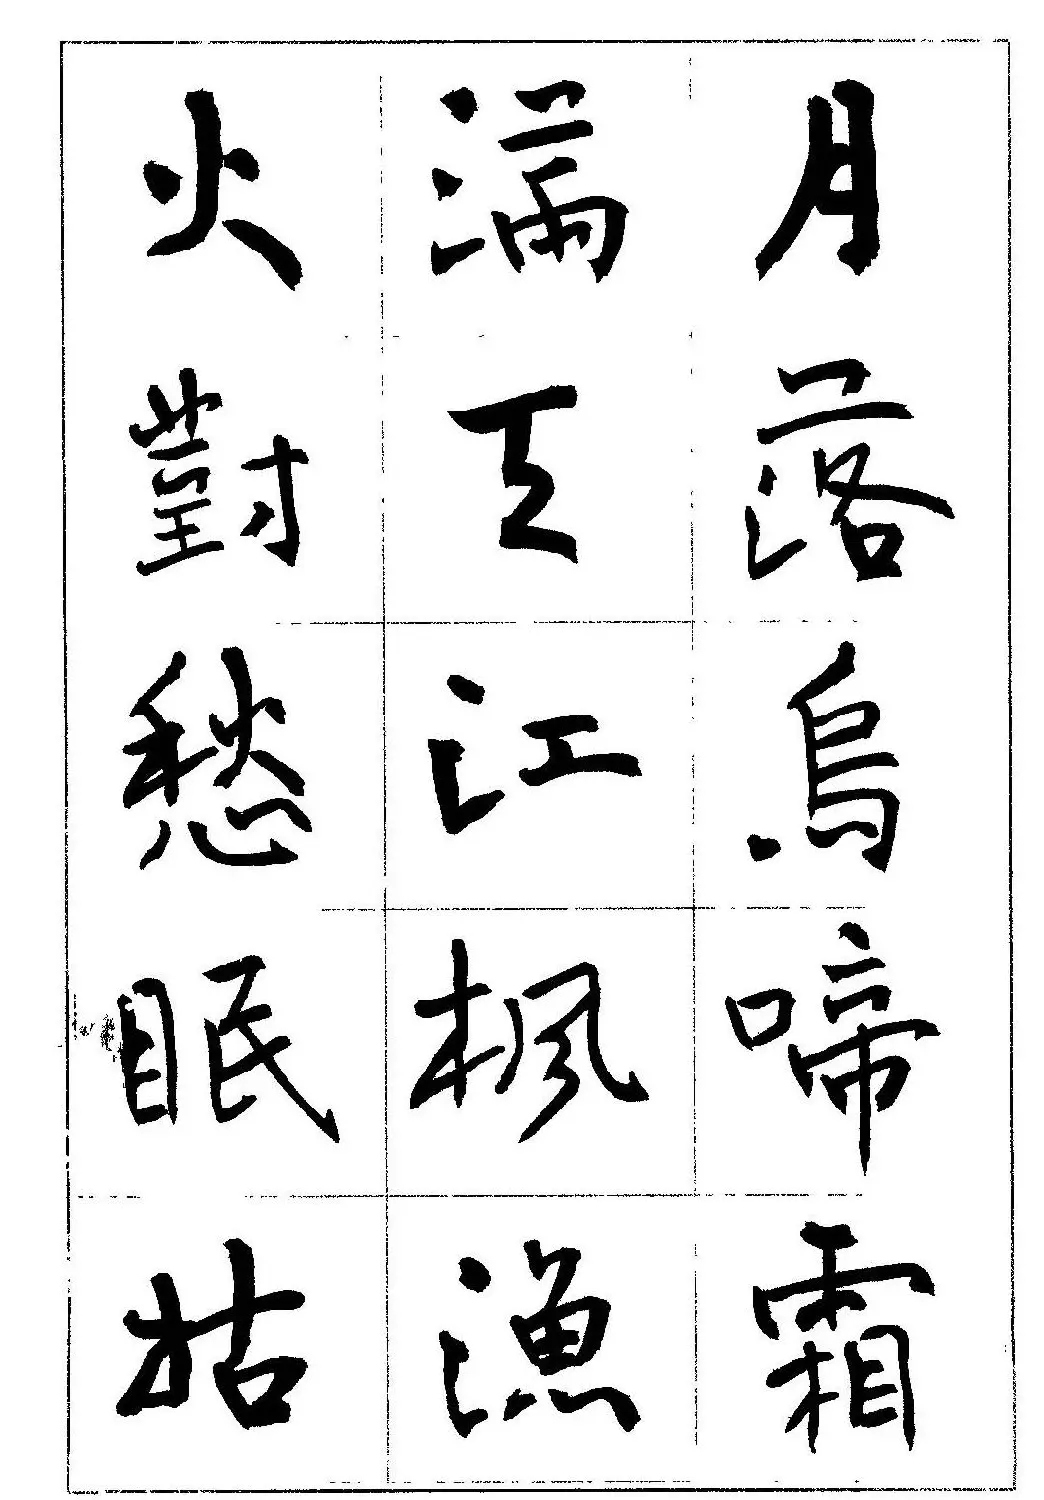 月落烏啼霜
滿天江楓漁
火對愁眠姑